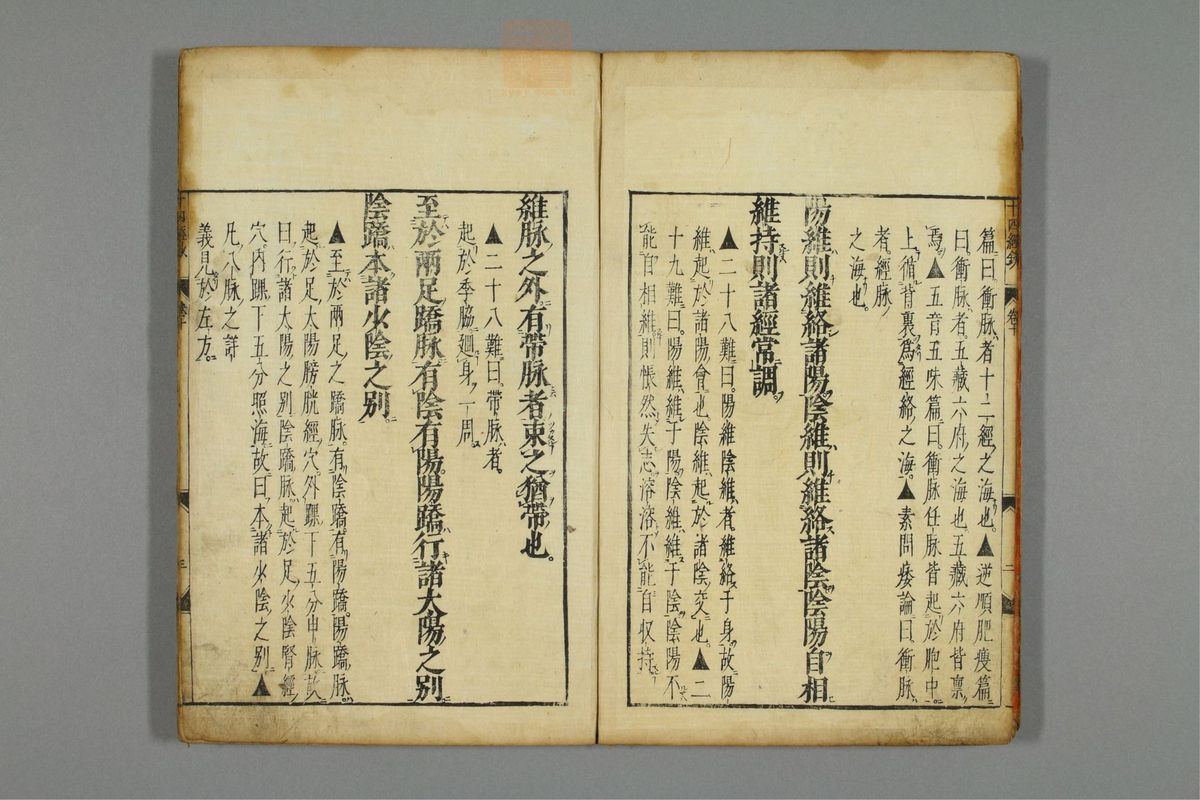 篇曰。衝脉者十二經之海也。▲逆順肥瘦篇
曰。衝脉者。五藏六府之海也。五藏六府皆稟
焉。▲五音五味篇曰。衝脉任脉皆起於胞中。
上循背裏爲經絡之海。▲素問痿論曰。衝脉
者。經脉
之海也。
陽維則維絡諸陽陰維則維絡諸陰陰陽自相
維持則諸經常調
▲二十八難曰。陽維陰維者。維絡于身。故陽
維起於諸陽會也陰維起於諸陰交也。▲二
十九難曰。陽維維于陽陰維維于陰陰陽不
能自相維則悵然失志溶溶不能自収持。
維脉之外有帶脉者束之猶帶也。
▲二十八難曰帶脉者。
起於季脇。廻身一周。
至於兩足蹻脉有陰有陽陽蹻行諸太陽之別
陰蹻本諸少陰之別。
▲至於兩足之蹻脉。有陰蹻。有陽蹻。陽蹻脉。
起於足太陽膀胱經穴。外踝下五分申脉。故
曰行諸太陽之別陰蹻脉。起於足少陰腎經
穴。内踝下五分照海。故曰本諸少陰之別▲
凡八脉之詳
義見於左方。